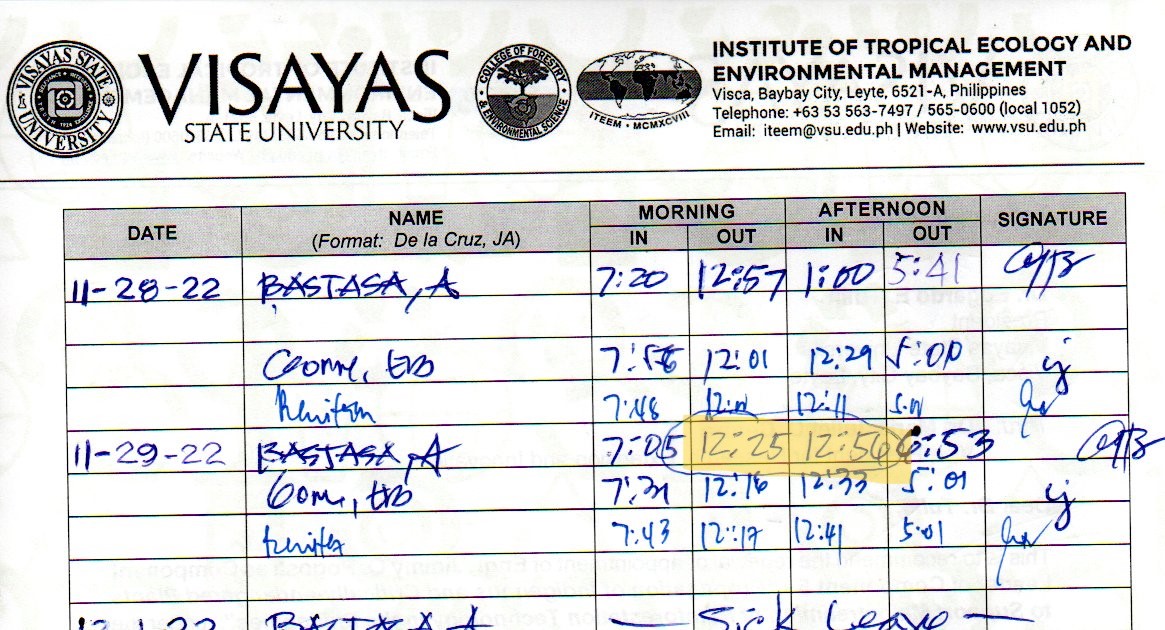 VISAYAS STATE UNIVERSITY
VISAYAS
STATE UNIVERSITY
COLLEGE OF FORESTRY & ENVIRONMENTAL SCIENCE
ITEEM • MCMXCVIII
INSTITUTE OF TROPICAL ECOLOGY AND
ENVIRONMENTAL MANAGEMENT
Visca, Baybay City, Leyte, 6521-A, Philippines
Telephone: +63 53 563-7497 / 565-0600 (local 1052)
Email: iteem@vsu.edu.ph | Website: www.vsu.edu.ph
DATE NAME MORNING AFTERNOON SIGNATURE
(Format: De la Cruz, JA) IN OUT IN OUT
11-28-22 BASTASA, A 7:20 12:57 1:00 5:41
12:01 12:29 5:00
7:48 12:11
11-29-22 BASTASA, A 7:05 12:25 12:56 6:53
7:31 12:16 12:33 5:01
7:43 12:17 12:41 5:01
BASTASA A — Sick Leave —